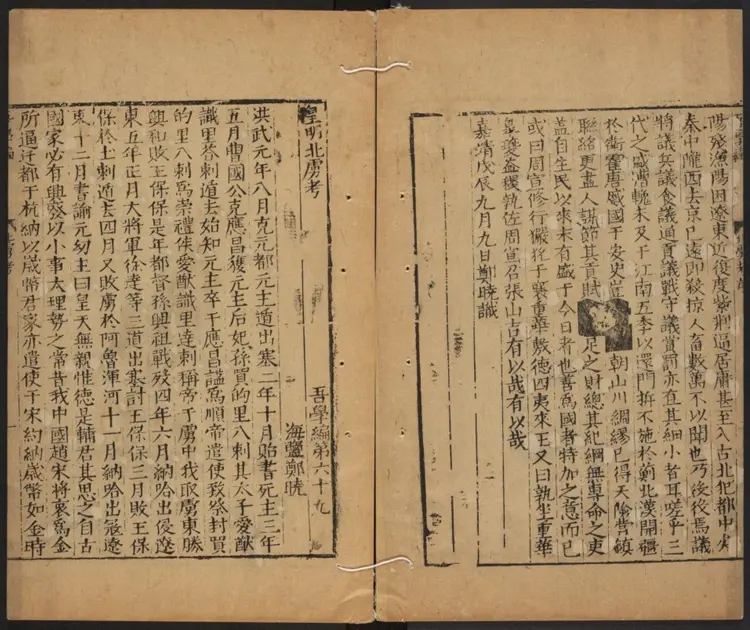 陽殘漁陽因遼東近復度紫荆逼居庸甚至入古北犯都中
秦中隴西去京已遠即殺掠人畜數萬不以聞也乃後後焉議
將議兵議食議通貢議戰守議賞罰亦直其細小者耳嗟乎三
代之盛漕輓未及于江南五季以還門拚不施於薊北漢開疆
於衛霍唐蹙國于安史豈朝山川綢繆已得天險營鎮
聯絡更盡人謀節其貢賦足之財總其紀綱無專命之吏
蓋自生民以來未有盛于今日者也善爲國者特加之意而已
或曰周宣修行玁狁于襄重華敷德四夷來王又曰孰坐重華
臯夔益稷孰佐周宣召張山吉有以哉有以哉
嘉靖戊辰九月九日鄭曉識
吾學編第六十九
皇明北虜考
海鹽鄭曉
洪武元年八月克元都元主遁出塞二年十月貽書元主三年
五月曹國公克應昌獲元主后妃孫買的里八剌其太子愛猷
識里荅剌遁去始知元主卒于應昌諡爲順帝遣使致祭封買
的里八剌爲崇禮侯愛猷識里達剌稱帝于虜中我取虜東勝
興和敗王保保是年都督孫興祖戰歿四年六月納哈出侵遼
東五年正月大將軍徐達等三道出塞討王保保三月敗王保
保於土剌遁去四月又敗虜於阿魯渾河十一月納哈出寇遼
東十二月書諭元幼主曰皇天無親惟德是輔君其思之自古
國家必有興廢以小事大理勢之常昔我中國趙宋將衰爲金
所逼迁都于杭納以歲幣君家亦遣使于宋約納歲幣如金時